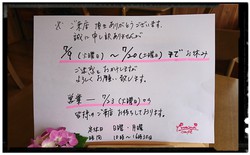 ご来店 頂きありがとうございます。
誠に申し訳ありませんが
(土曜日) ～ 7/20 (土曜日) までお休み
ご迷惑 おかけしますが
よろしくお願い致します。
営業 ― 7/23 (火曜日) から
皆様のご来店お待ちしております。
定休日 日曜・月曜